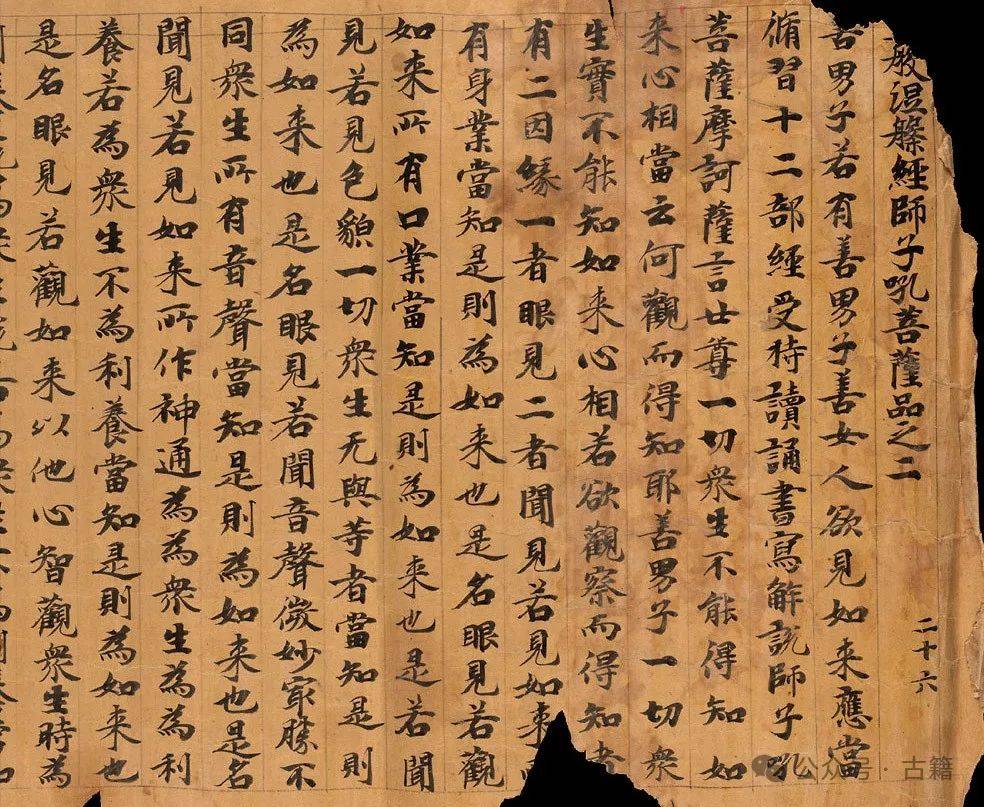 般涅槃經師子吼菩薩品之二 二十六
善男子若有善男子善女人欲見如来應當
脩習十二部經受持讀誦書寫解說師子吼
菩薩摩訶薩言世尊一切衆生不能得知如
来心相當云何觀而得知耶善男子一切衆
生實不能知如来心相若欲觀察而得知者
有二因緣一者眼見二者聞見若見如来
有身業當知是則為如来也是名眼見若觀
如来所有口業當知是則為如来也是若聞
見若見色貌一切衆生无與等者當知是則
為如来也是名眼見若聞音聲微妙㝡勝不
同衆生所有音聲當知是則為如来也是名
聞見若見如来所作神通為為衆生為為利
養若為衆生不為利養當知是則為如来也
是名眼見若觀如来以他心智觀衆生時為
公众号·古籍